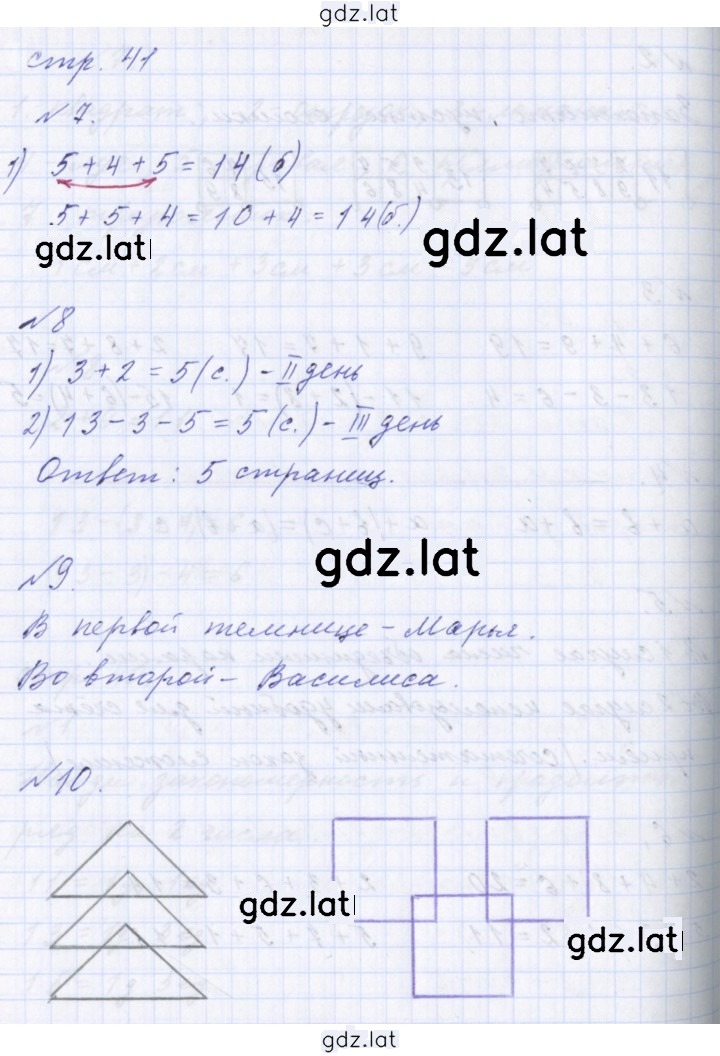 gdz.lat
стр. 41
№7.
1) 5 + 4 + 5 = 14 (б)
5 + 5 + 4 = 10 + 4 = 14 (б.)
gdz.lat
gdz.lat
№8
1) 3 + 2 = 5 (с.) - II день
2) 13 - 3 - 5 = 5 (с.) - III день
Ответ: 5 страниц.
gdz.lat
№9.
В первой темнице - Марья.
Во второй - Василиса.
№10.
gdz.lat
gdz.lat
gdz.lat